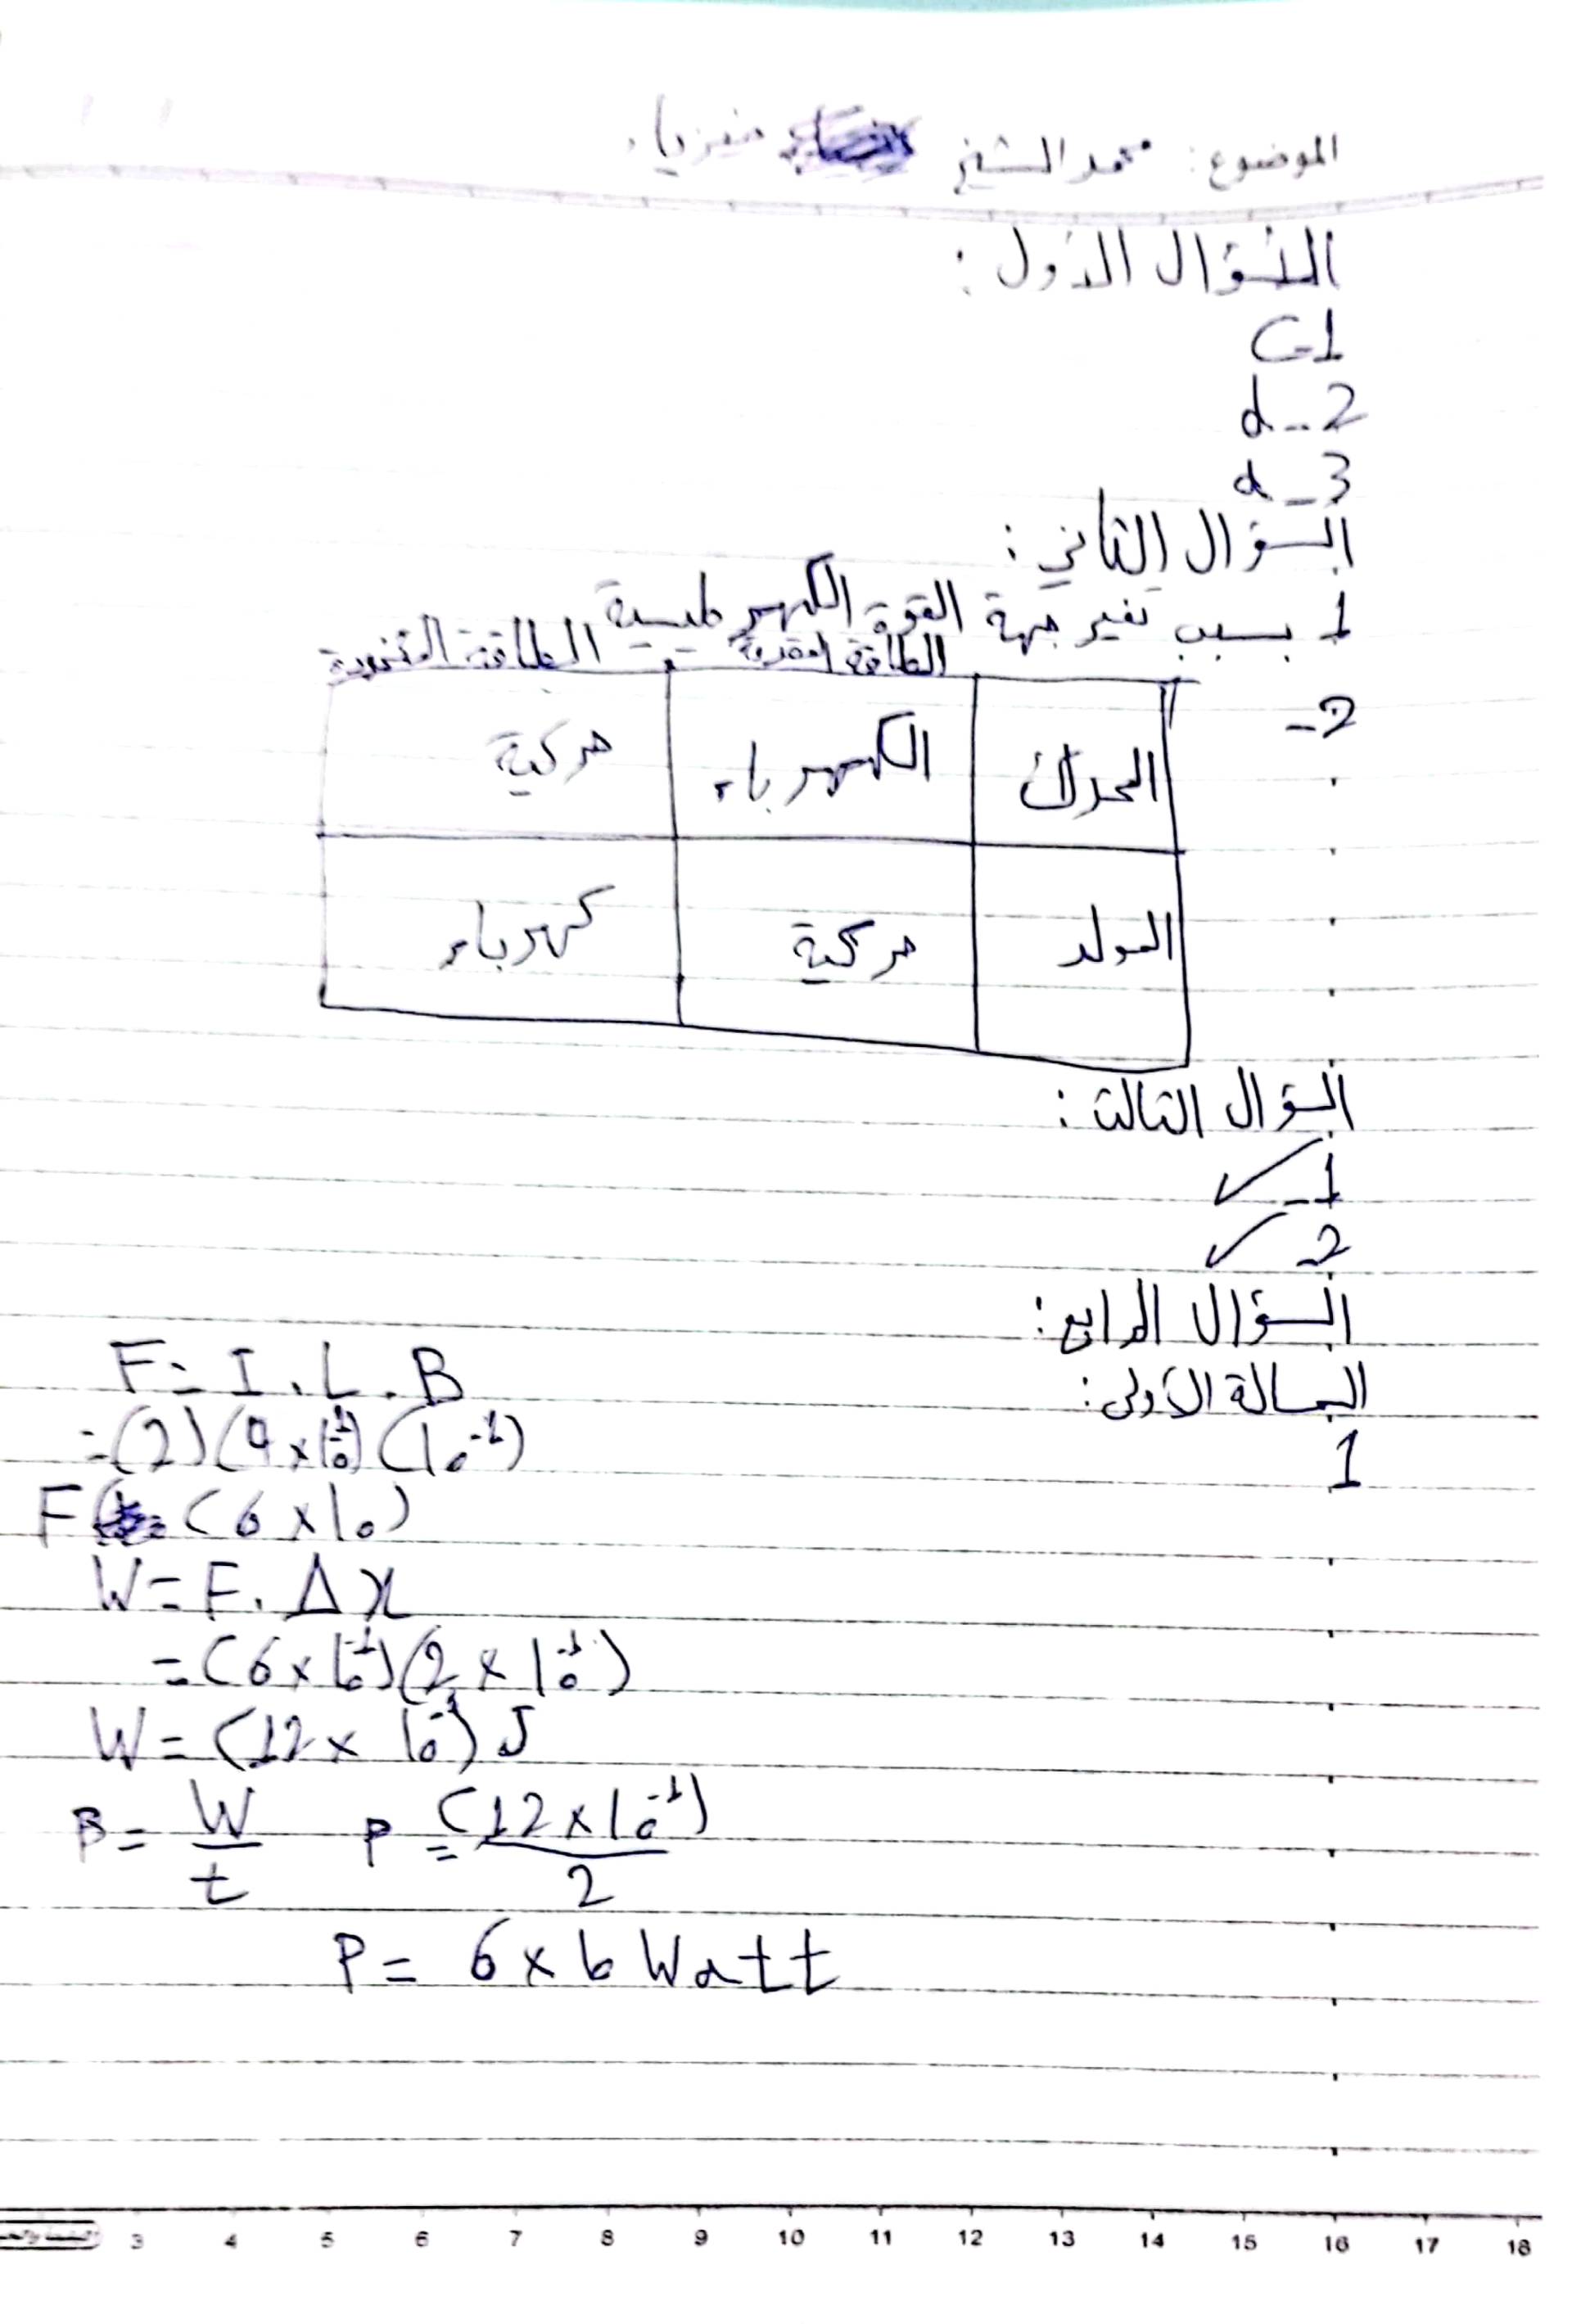 الموضوع: محمد الشيخ فيزياء
السؤال الأول:
C-1
d-2
d-3
السؤال الثاني:
1 بسبب تغير جهة القوة الكهرطيسية
2-
الطاقة المقدمة الطاقة المأخوذة
المحرك الكهرباء حركية
المولد حركية كهرباء
السؤال الثالث:
1- ✓
2- ✓
السؤال الرابع:
المسالة الأولى:
1
F = I . L . B
= (2) (9 × 10⁻¹) (10⁻¹)
F = (6 × 10)
W = F . Δx
= (6 × 10⁻¹) (2 × 10⁻¹)
W = (12 × 10⁻¹) J
P = W/t P = (12 × 10⁻¹)/2
P = 6 × 6 Watt
3 4 5 6 7 8 9 10 11 12 13 14 15 16 17 18